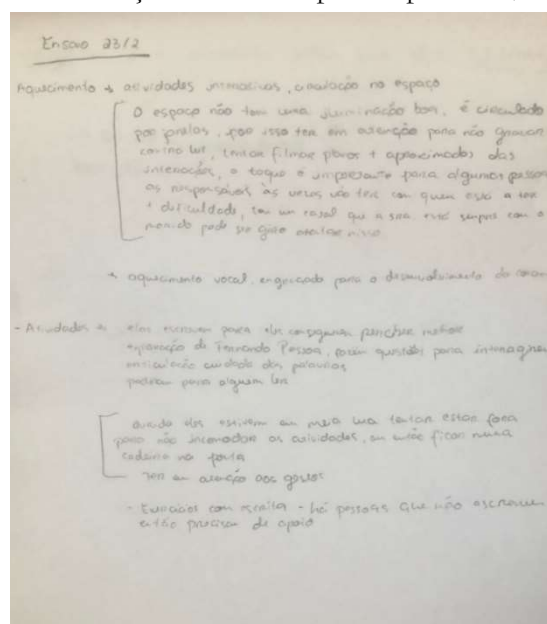 Ensaio 23/2
Aquecimento → atividades interativas, circulação no espaço
O espaço não tem uma iluminação boa, é circulado
por janelas, por isso ter em atenção para não gravar
contra luz, tentar filmar planos + aproximados das
interações, o toque é importante para algumas pessoas
os responsáveis às vezes vão ter com quem está a ter
+ dificuldade, tem um casal que a sra está sempre com o
marido pode ser giro
→ aquecimento vocal, engraçado para o desenvolvimento da
- Atividades → eles escrevem para eles conseguirem perceber melhor
explicação de Fernando Pessoa, fazem questões para interagirem
articulação cuidada das palavras
pediram para alguém ler
quando eles estiverem em meia lua tentar estar fora
para não incomodar as atividades, ou então ficar numa
cadeira na ponta
- Ter em atenção aos gestos
- Exercícios com escrita - há pessoas que não escrevem
então precisam de apoio